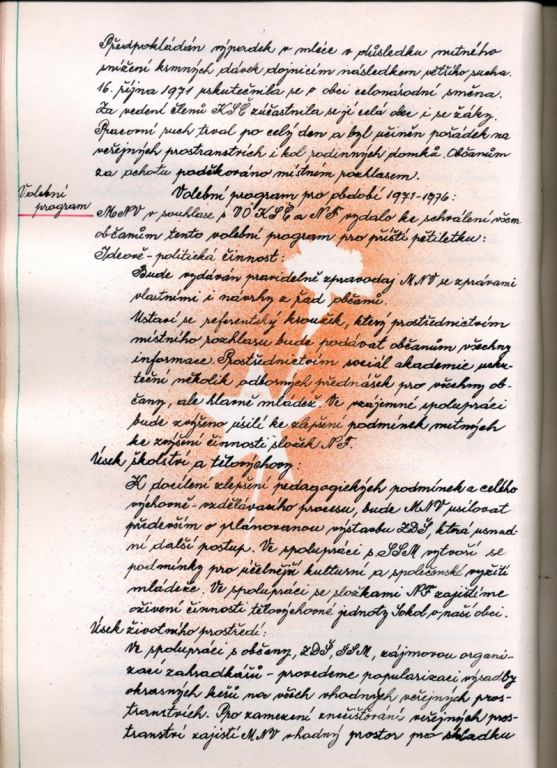 Předpokládán výpadek v mléce v důsledku nutného
snížení krmných dávek dojnicím následkem většího sucha.
16. října 1971 uskutečnila se v obci celonárodní směna.
Za vedení členů KSČ zúčastnila se jí celá obec i se žáky.
Pracovní ruch trval po celý den a byl učiněn pořádek na
veřejných prostranstvích i kol rodinných domků. Občanům
za ochotu poděkováno místním rozhlasem.
Volební
program
Volební program pro období 1971-1976:
MNV v souhlase s VO KSČ a NF vydalo ke schválení všem
občanům tento volební program pro příští pětiletku:
Ideově-politická činnost:
Bude vydáván pravidelně zpravodaj MNV se zprávami
vlastními i návrhy z řad občanů.
Ustaví se referentský kroužek, který prostřednictvím
místního rozhlasu bude podávat občanům všechny
informace. Prostřednictvím sociál akademie usku-
teční několik odborných přednášek pro všechny ob-
čany, ale hlavně mládež. Ve vzájemné spolupráci
bude zvýšeno úsilí ke zlepšení podmínek nutných
ke zvýšení činnosti složek NF.
Úsek školství a tělovýchovy:
K docílení zlepšení pedagogických podmínek a celého
výchovně-vzdělávacího procesu, bude MNV usilovat
především o plánovanou výstavbu ZDŠ, která usnad-
ní další postup. Ve spolupráci s SSM vytvoří se
podmínky pro účelnější kulturní a společenské vyžití
mládeže. Ve spolupráci se složkami NF zajistíme
oživení činnosti tělovýchovné jednoty Sokol v naší obci.
Úsek životního prostředí:
Ve spolupráci s občany, ZDŠ, SSM, zájmovou organi-
zací zahrádkářů - provedeme popularizaci výsadby
okrasných keřů na všech vhodných veřejných pros-
transtvích. Pro zamezení znečišťování veřejných pros-
tranství zajistí MNV vhodný prostor pro skládku